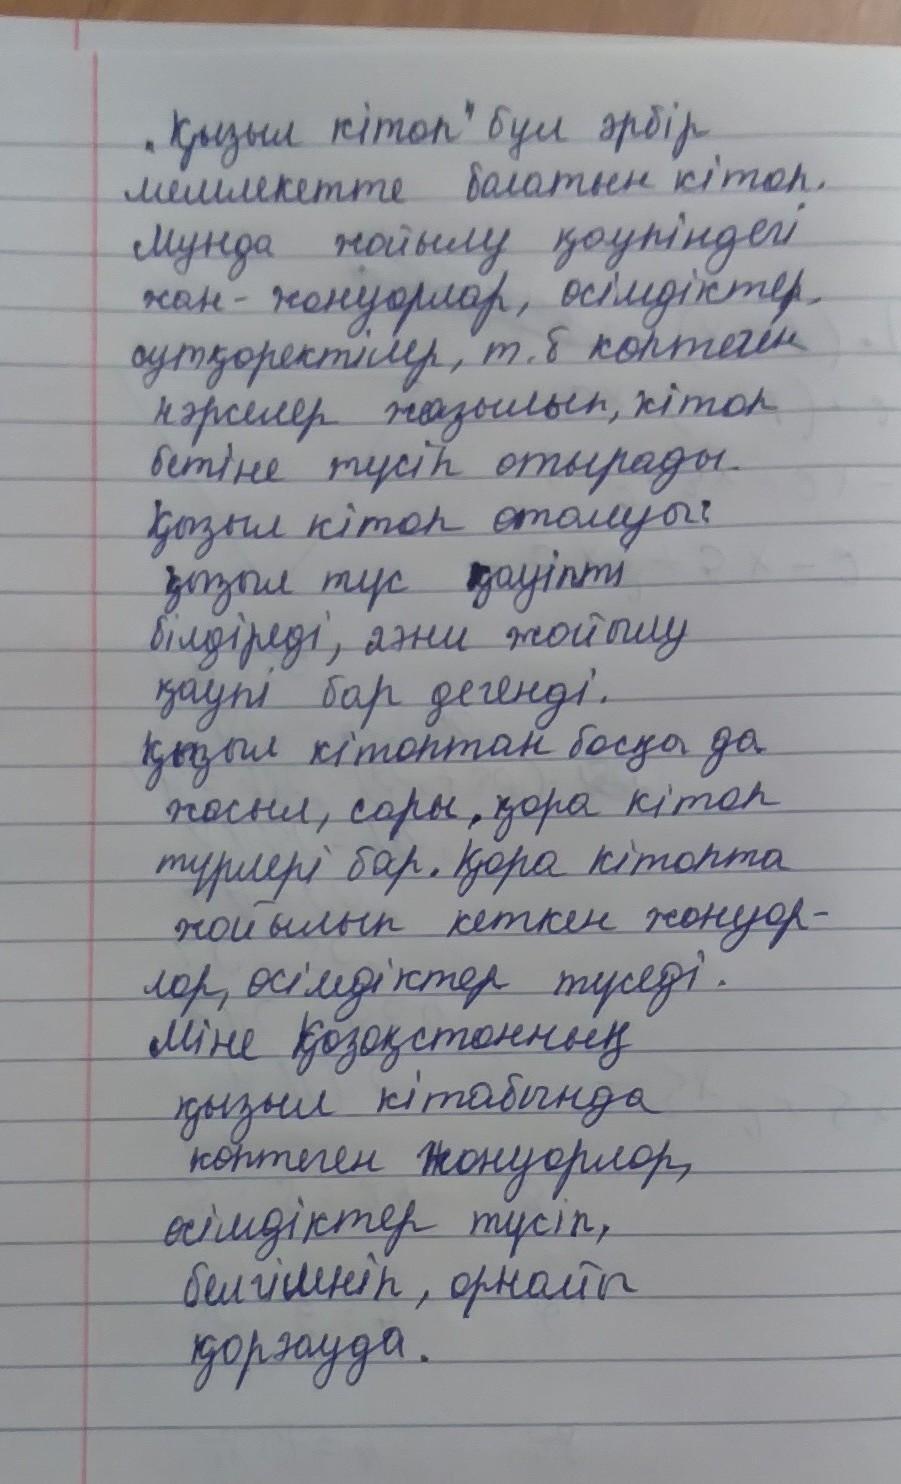 "Қызыл кітап" бұл әрбір
мемлекетте болатын кітап.
Мунда жойылу қаупіндегі
жан-жануарлар, өсімдіктер,
сутқоректілер, т.б коптеген
нәрселер жазылып, кітап
бетіне тусіп отырады.
Қызыл кітап аталуы:
қызыл тус қауіпті
білдіреді, яғни жойылу
қаупі бар дегенді.
Қызыл кітаптан басқа да
жасыл, сары, қара кітап
турлері бар. Қара кітапта
жойылып кеткен жануар-
лар, өсімдіктер туседі.
Міне Қазақстанның
қызыл кітабында
коптеген жануарлар,
өсімдіктер тусіп,
белгіленіп, арнайы
қорғауда.